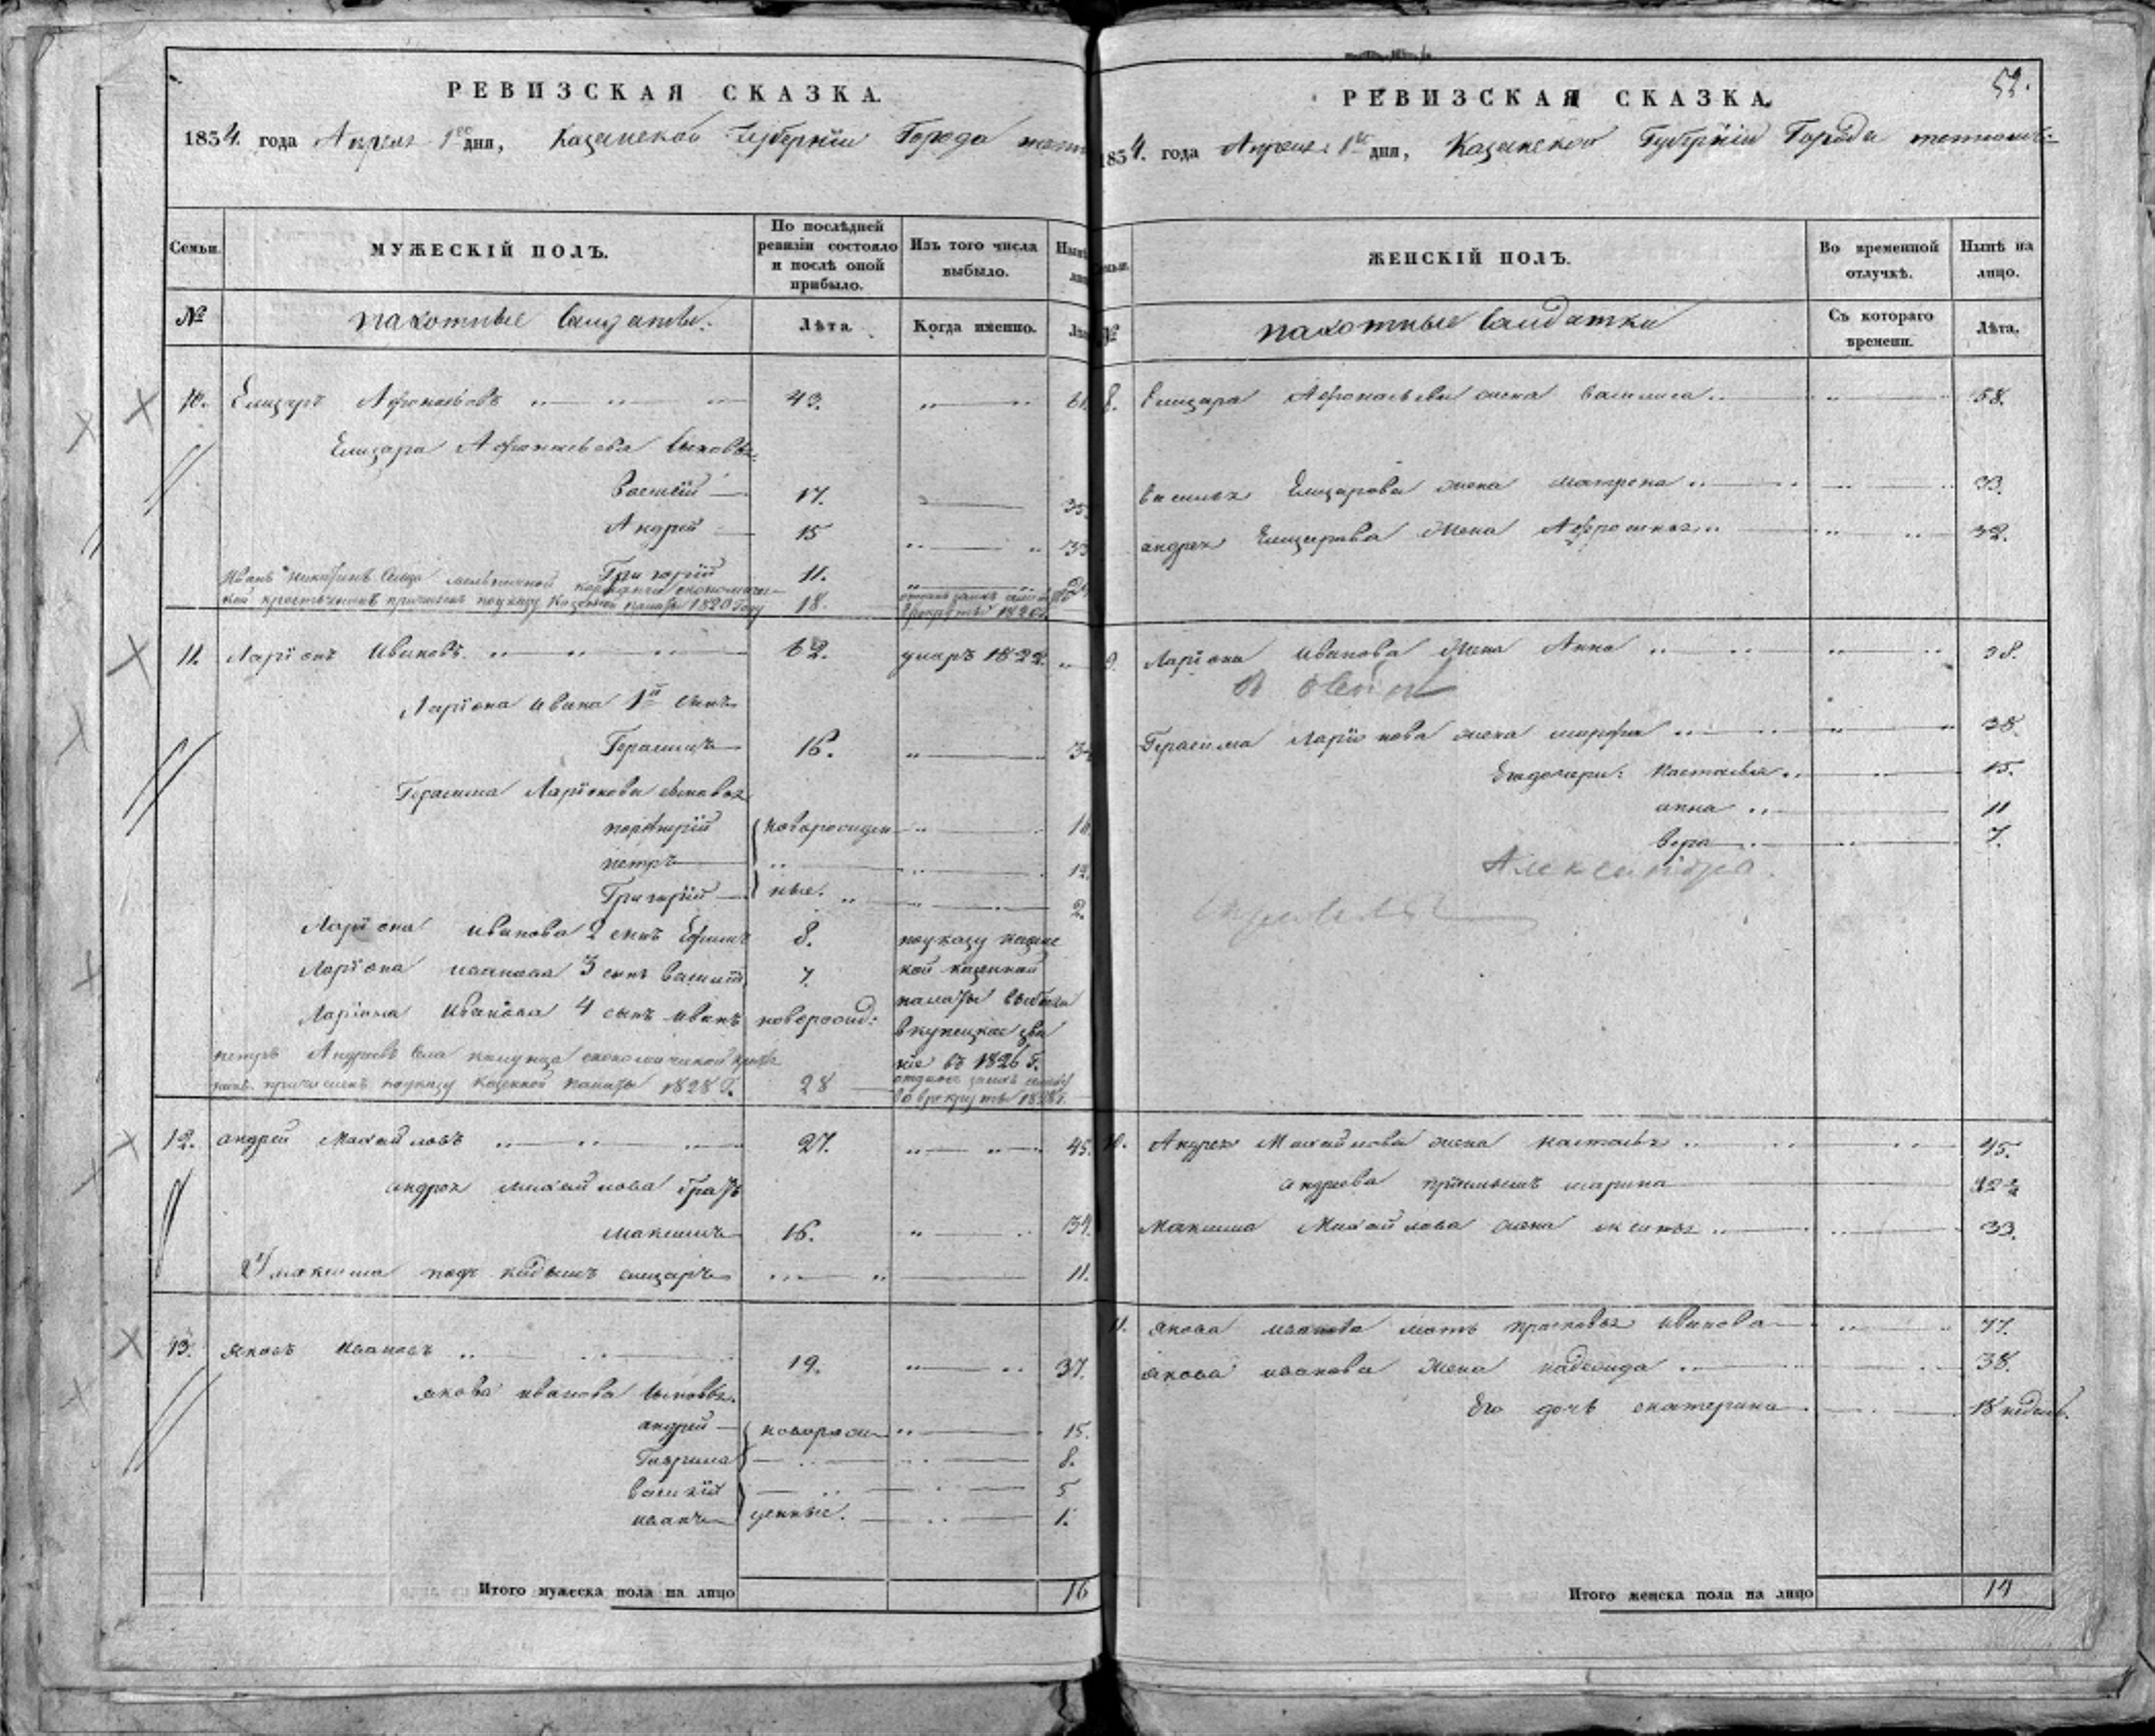 РЕВИЗСКАЯ СКАЗКА.
1834. года Апреля 1го дня, Казанской Губернiи Города
Семьи.
МУЖЕСКІЙ ПОЛЪ.
По послѣдней ревизіи состояло и послѣ оной прибыло.
Изъ того числа выбыло.
№
пахотные Солдаты.
Лѣта.
Когда именно.
10. Елизаръ Афонасьевъ 43. 61.
Елизара Афонасьева Сыновья
Василiй 17. 35.
Андрей 15 33
Григорiй 11.
Иванъ Никитинъ
причисленъ по указу Казенной палаты 1820 году 18.
11. Ларiонъ Ивановъ. 62. умаръ 1822.
Ларiона Ивана 1й сынъ
Герасимъ 16. 34
Герасима Ларiонова сыновья
порфирiй новорожден 16
петръ 12
Григорiй ные. 2.
Ларiона иванова 2 сынъ Ефимъ 8. по указу казанс
Ларiона иванова 3 сынъ Василiй 7. кой казенной
палаты выбыли
Ларiона Иванова 4 сынъ иванъ новорожд: в купецкое зва
нiе въ 1826 г.
петръ Андреевъ Села
причисленъ по указу Казенной палаты 1828 г. 28
12. андрей Михайловъ 27. 45.
андрея михайлова братъ
максимъ 16. 34.
максима подкидышъ елизаръ 11.
13. яковъ ивановъ 19. 37.
якова иванова сыновья.
андрей новорож 15.
Гаврила 8.
василiй 5
иванъ денные. 1.
Итого мужеска пола на лицо 16
52.
РЕВИЗСКАЯ СКАЗКА.
1834. года Апреля 1го дня, Казанской Губернiи Города
ЖЕНСКІЙ ПОЛЪ.
Во временной отлучкѣ.
Нынѣ на лицо.
№
пахотные Солдатки
Съ котораго времени.
Лѣта.
8. Елизара Афонасьева жена василиса 58.
василья Елизарова жена матрена 33.
андрея Елизарова жена Афросинья 32.
9. Ларiона иванова жена Анна 38.
Герасима Ларiонова жена марфа 38.
Его дочери: настасья 15.
анна 11
вера 7.
Александра.
10. Андрея Михайлова жена настасья 45.
андреева прiемышъ марина
Максима Михайлова жена аксинья 33.
11. якова иванова мать прасковья иванова 77.
якова иванова жена надежда 38.
Его дочь екатерина 18 недель.
Итого женска пола на лицо 14